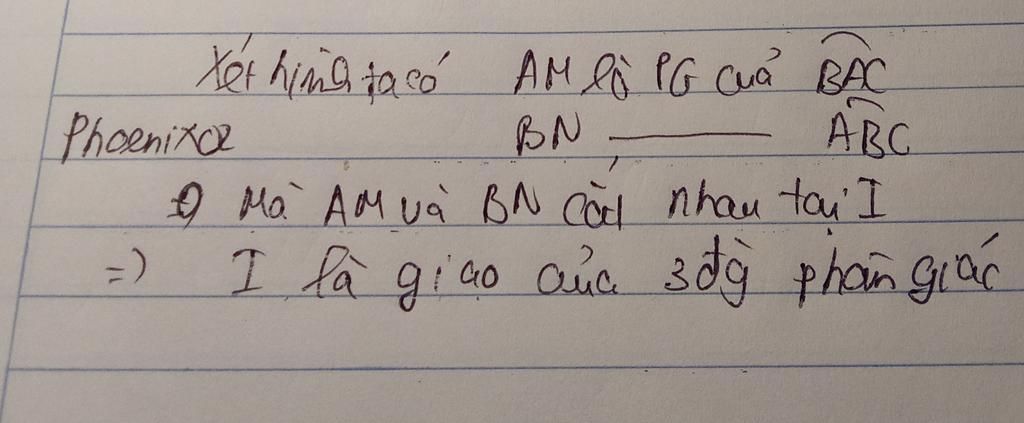 Xét hình ta có AM là PG của BAC
Phoenixoz BN ——— ABC
Mà AM và BN cắt nhau tại I
=) I là giao của 3 đg phân giác